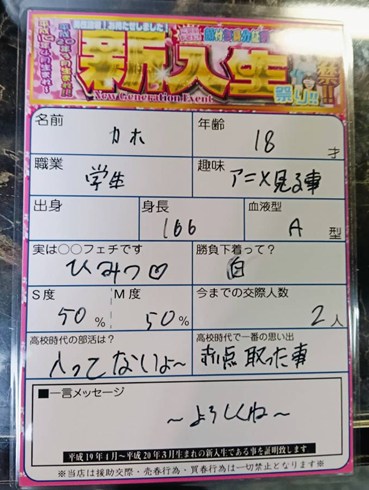 新入生
祭り!!
New Generation Event
名前 カホ 年齢 18 才
職業 学生 趣味 アニメ見る事
出身 身長 166 血液型 A 型
実は○○フェチです 勝負下着って?
ひみつ♡ 白
S度 50% M度 50% 今までの交際人数 2人
高校時代の部活は? 高校時代で一番の思い出
入ってないよ~ 赤点取った事
■一言メッセージ
~よろしくね~
平成19年4月~平成20年3月生まれの新入生である事を証明致します
※当店は援助交際・売春行為・買春行為は一切禁止となります※